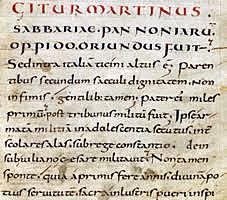 GITUR MARTINUS.
SABBARIAE. PANNONIARŪ
OPPIDO ORIUNDUS FUIT.
Sed intra italiā ticini altus ē, Paren
tibus secundum saeculi dignitatem. Non
infimis. gentilib; tamen. Pater ei miles
primū. post tribunus militū fuit, Ipse ar
matā militiā in adolescentia secutus, int
scolares alas; sub rege constantio. dein
sub iuliano cesare militavit. Non tamen
sponte. quia a primis fere annis; divinā po
tius servitutē. sacra inlustris pueri inspi